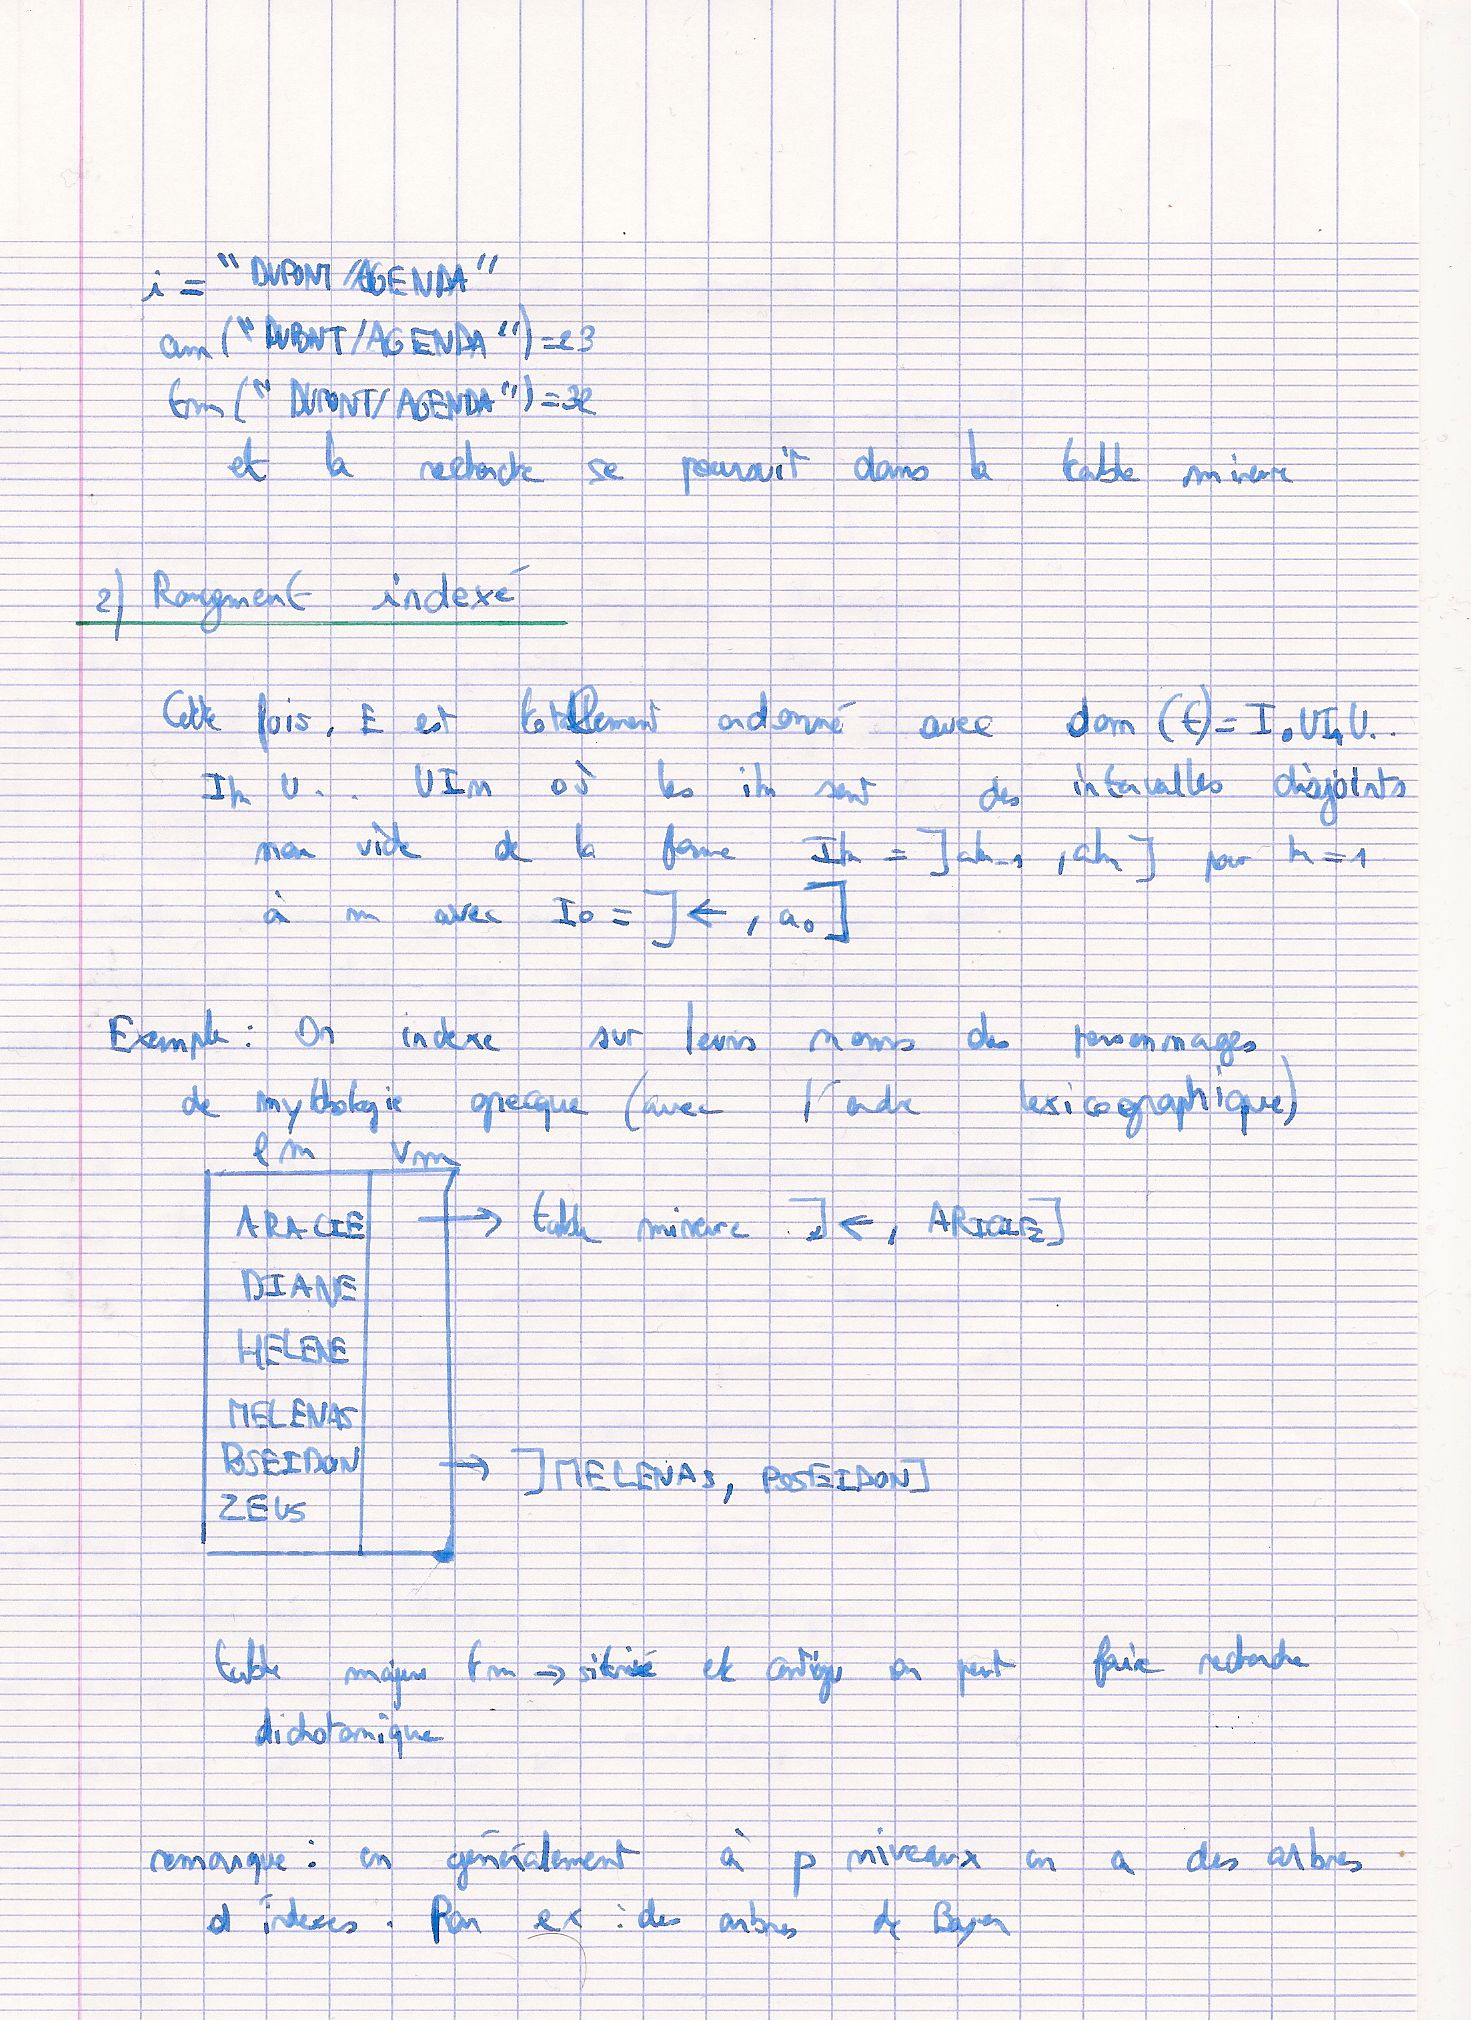 i = "DUPONT/AGENDA"
am ("DUPONT/AGENDA") = 23
tm ("DUPONT/AGENDA") = 32
et la recherche se poursuit dans la table mineure
2) Rangment indexé
Cette fois, E est totallement ordonné avec dom (t) = I0 U I1 U ..
Ik U ... U In où les ik sont des intervalles disjoints
non vide de la forme Ik = ]ak-1 , ak] pour k = 1
à m avec I0 = ]← , a0]
Exemple : On indexe sur leurs noms des personnages
de mythologie grecque (avec l'ordre lexicographique)
lm Vm
ARACIE → table mineure ]← , ARICIE]
DIANE
HELENE
MELENAS
POSEIDON → ]MELENAS, POSEIDON]
ZEUS
table majeure tm → et contigu on peut faire recherche
dichotomique
remarque : en généralement à p niveaux on a des arbres
d'indexes. Par ex : des arbres de Bayer